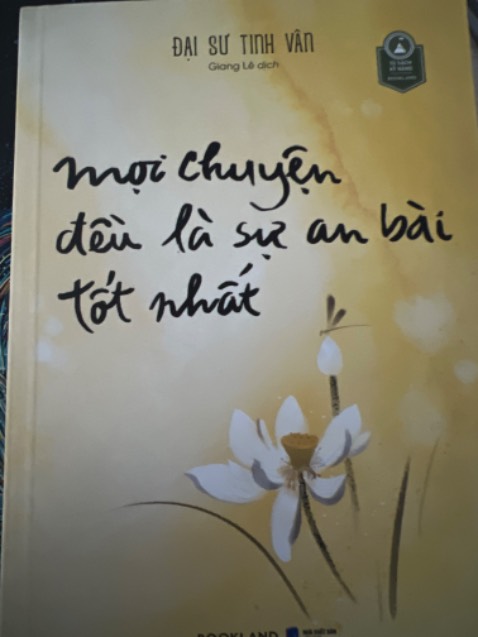 ĐẠI SƯ TINH VÂN
Giang Lê dịch
mọi chuyện
đều là sự an bài
tốt nhất
BOOKLAND